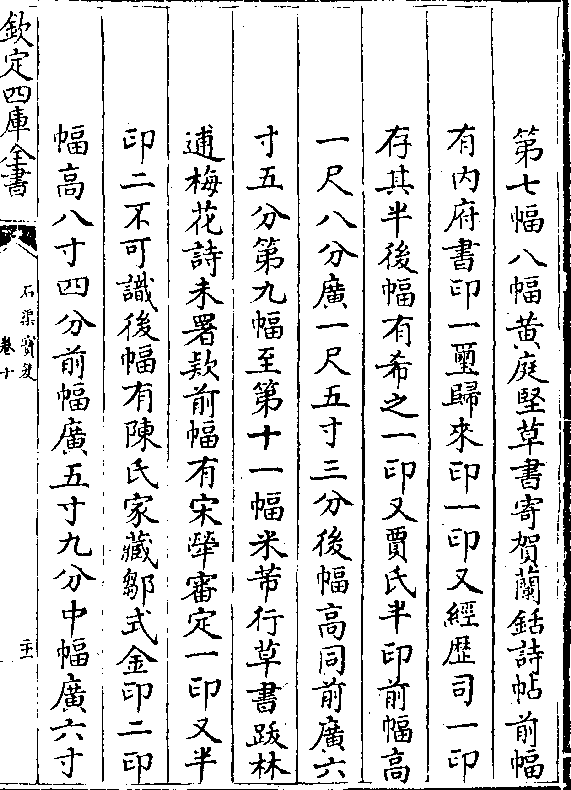 第七幅八幅黄庭堅草書寄賀蘭銛詩帖前幅
有内府書印一璽歸來印一印又經歷司一印
存其半後幅有希之一印又賈氏半印前幅高
一尺八分廣一尺五寸三分後幅高同前廣六
寸五分第九幅至第十一幅米芾行草書跋林
逋梅花詩未署款前幅有宋犖審定一印又半
印二不可識後幅有陳氏家藏鄒式金印二印
幅高八寸四分前幅廣五寸九分中幅廣六寸
欽定四庫全書
石渠寶笈
卷十